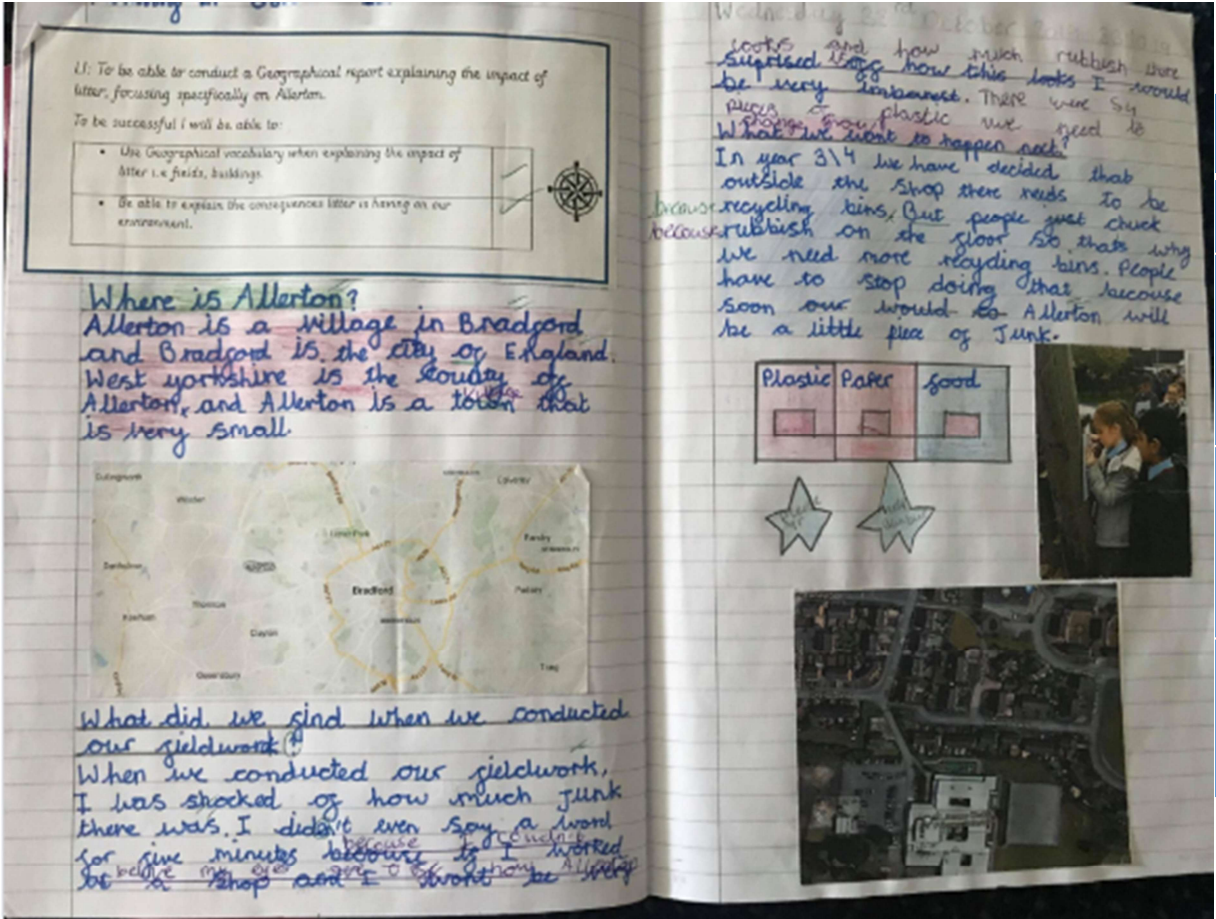 LI: To be able to conduct a Geographical report explaining the impact of
litter, focusing specifically on Allerton.
To be successful I will be able to:
Use Geographical vocabulary when explaining the impact of
litter i.e fields, buildings.
Be able to explain the consequences litter is having on our
environment.
Where is Allerton?
Allerton is a village in Bradford
and Bradford is the city of England.
West yorkshire is the county of
Allerton, and Allerton is a town that
village
is very small.
Bradford
Clayton
Thornton
Queensbury
Pudsey
What did we find when we conducted
our fieldwork?
When we conducted our fieldwork,
I was shocked of how much Junk
there was. I didn't even say a word
because I couldn't
for five minutes because if I worked
believe my eyes how Allerton
at a shop and I went be very
Wednesday 23rd October
looks and how much rubbish there
suprised of how this looks I would
be very
There were 54
pieces of plastic we need to
change
What we want to happen next?
In year 3\4 we have decided that
outside the shop there needs to be
because recycling bins, But people just chuck
because rubbish on the floor so thats why
we need more recycling bins. People
have to stop doing that because
soon our would to Allerton will
be a little piece of Junk.
Plastic Paper food